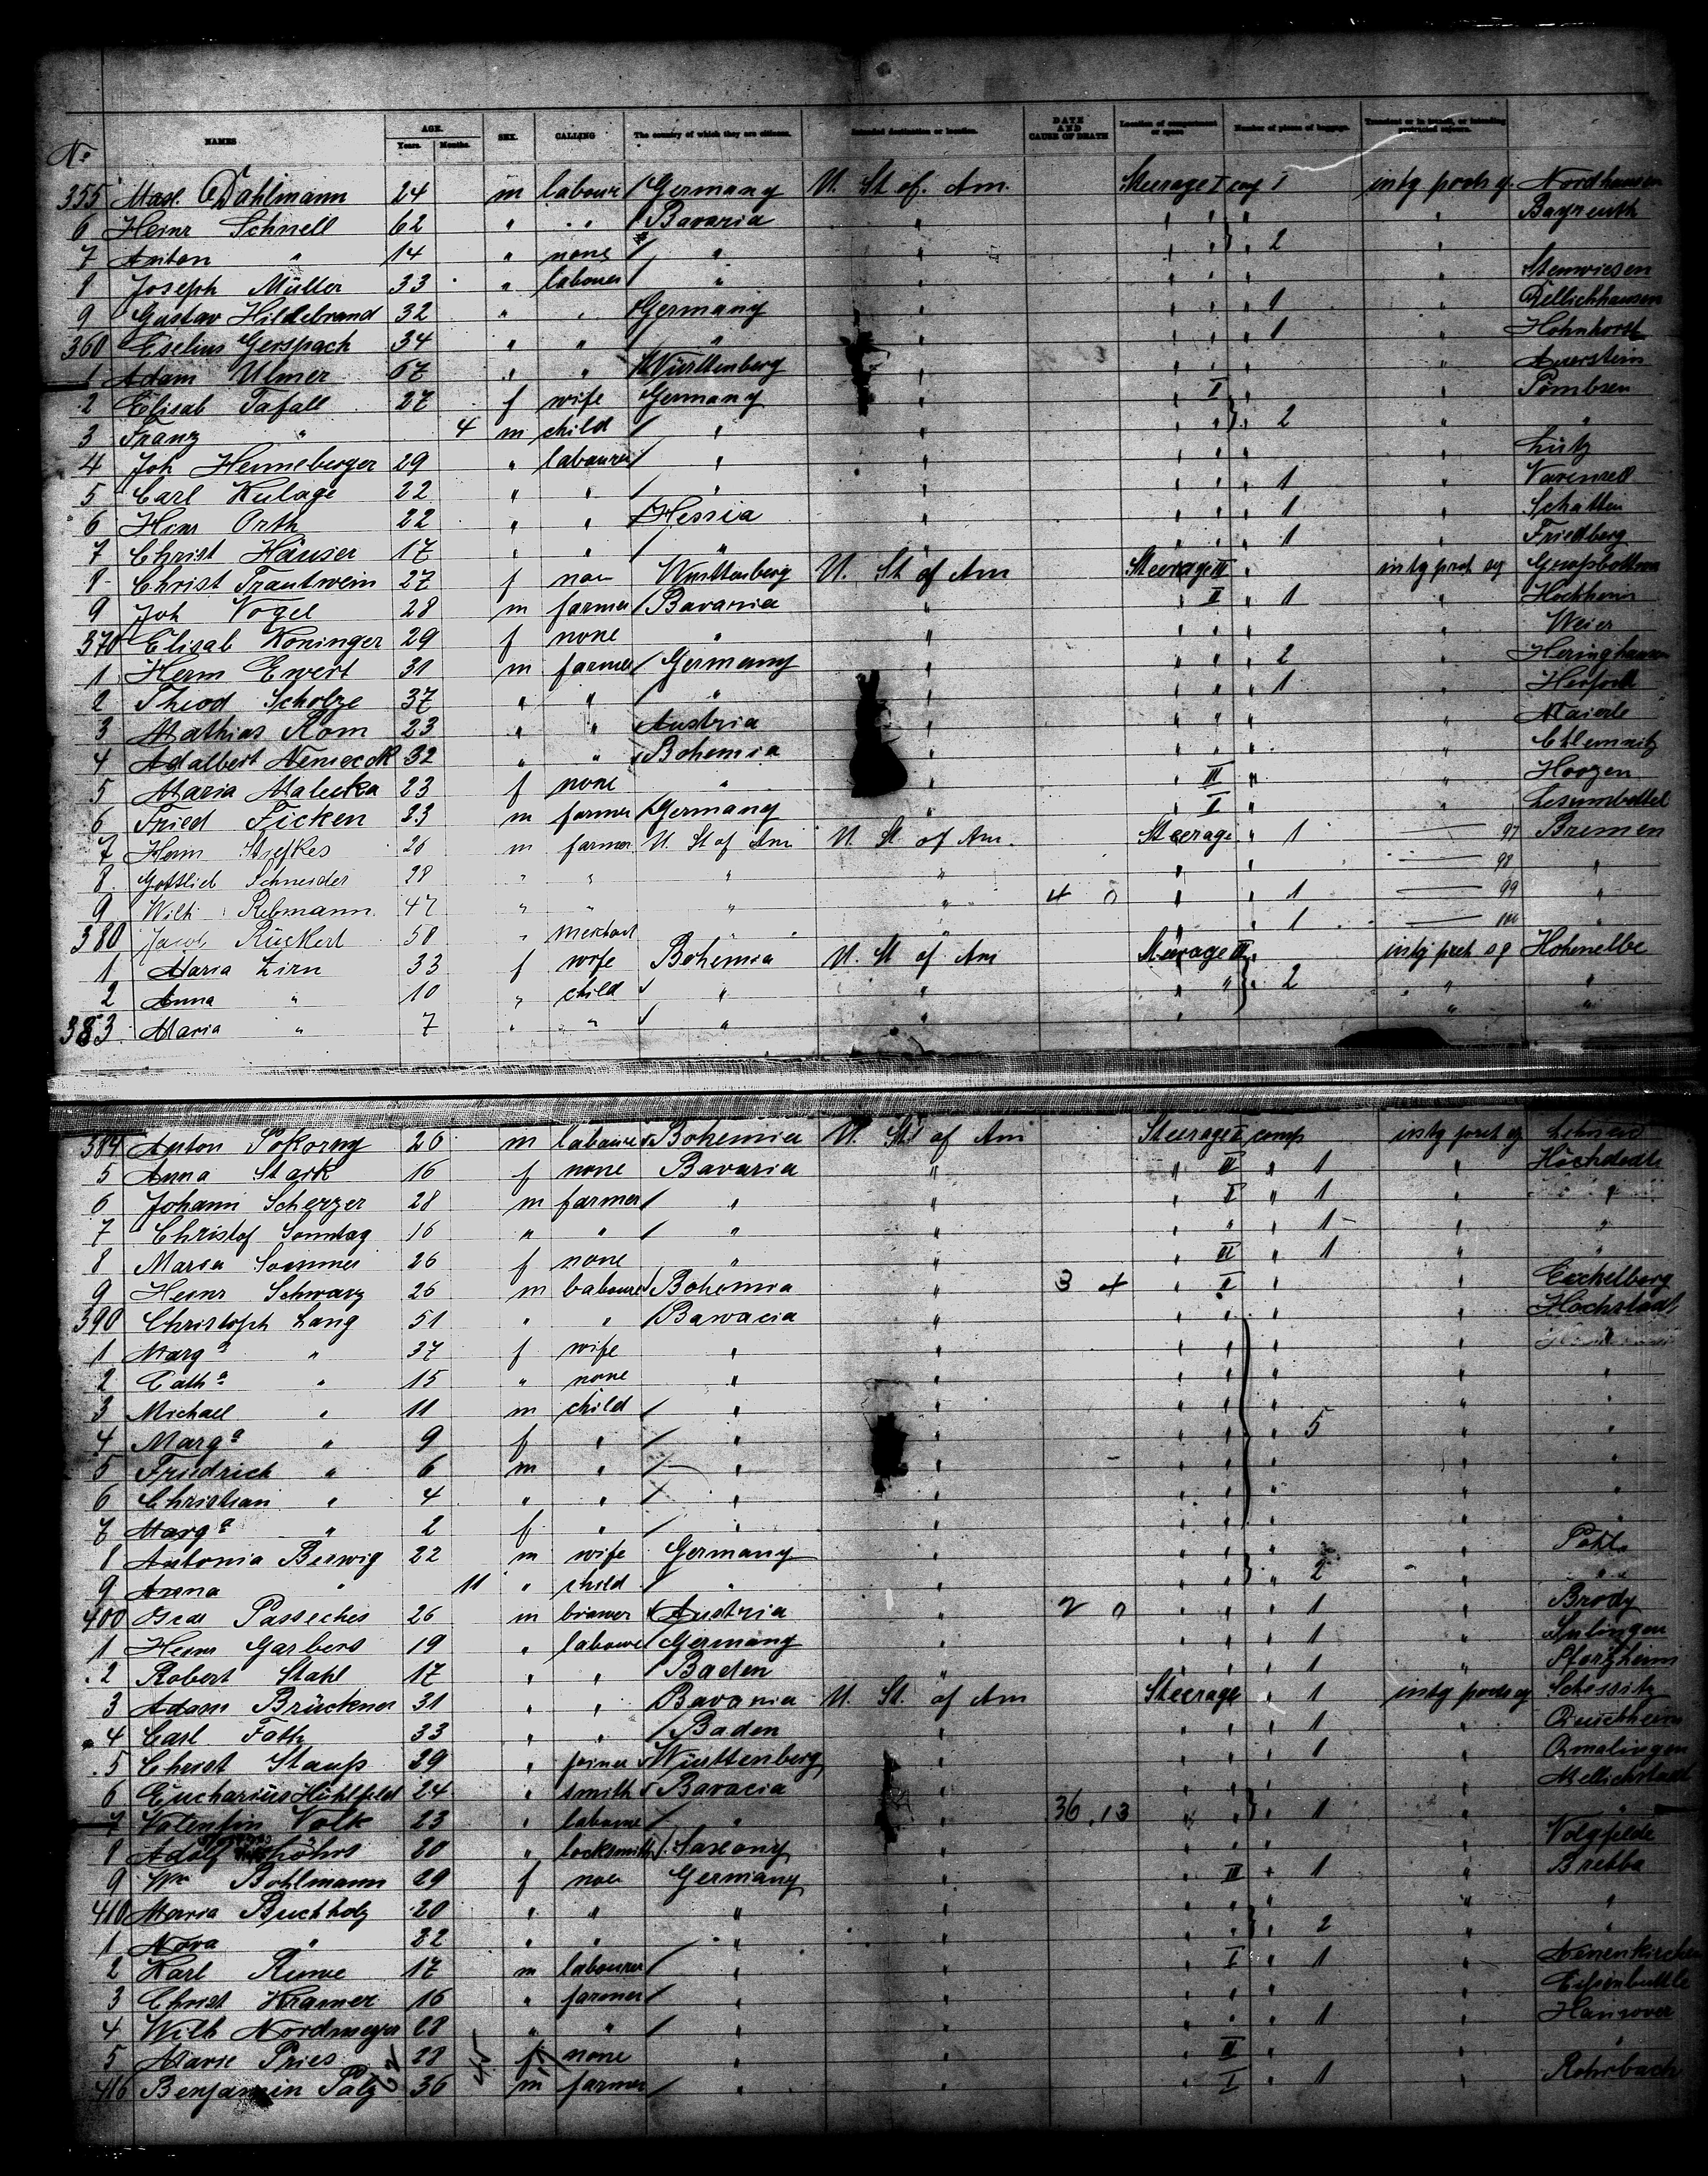 NAMES AGE. Years. Months. SEX. CALLING The country of which they are citizens. Intended destination or location. DATE AND CAUSE OF DEATH Location of compartment or space Number of pieces of baggage. Transient or in transit, or intending protracted sojourn.
No
355 Dahlmann 24 m labour Germany U. St of. Am. Steerage I 1 Nordhausen
6 Heinr Schnell 62 " " " Bavaria " " " " Bayreuth
7 Anton " 14 " none " " " " " 2 "
8 Joseph Müller 33 " labourer " " " " " " Stenwiesen
9 Gustav Hildebrand 32 " " Germany " " " " 1 "
360 Eselius Gerspach 34 " " " " " " " 1 " Hohnhorst
1 Adam Ulmer 67 " " Württenberg " " " " " Auerstein
2 Elisab Tafall 27 f wife Germany " " I " Pömbsen
3 Franz " 4 m child " " " " " 2 " "
4 Joh Henneberger 29 " labourer " " " " " " Lütz
5 Carl Kulage 22 " " " " " " " 1 " Varenrell
6 Heinr Orth 22 " " Hessia " " " " 1 " Schotten
7 Christ Häuser 17 " " " " " " " 1 " Friedberg
8 Christ Trautwein 27 f non Württenberg U. St of Am Steerage III "
9 Joh Vogel 28 m farmer Bavaria " " II " 1 " Hochheim
370 Elisab Koninger 29 f none " " " " " " Weier
1 Herm Ewert 31 m farmer Germany " " " " 2 " Heringhausen
2 Theod Scholze 37 " " " " " " " 1 " Herford
3 Mathias Rom 23 " " Austria " " " " " Maierle
4 Adalbert Nemecek 32 " " Bohemia " " " " " Chlemnitz
5 Maria Malecka 23 f none " " " III " " Hoozen
6 Fried Ficken 23 m farmer Germany " " I " " Lesumbottel
7 Herm 26 m farmer U. St of Am U. St. of Am. Steerage " 1 97 Bremen
8 Gottlieb Schneider 28 " " " " " " 98 "
9 Wilh Rebmann 47 " " " " 4 0 " " 1 99 "
380 Jacob Rückert 58 " merchant " " " " 1 100 "
1 Maria Zirn 33 f wife Bohemia U. St of Am Steerage III " Hohenelbe
2 Anna " 10 " child " " " " " 2 " "
383 Maria " 7 " " " " " " "
384 Anton Pokorny 26 m labourer Bohemia U. St. of Am Steerage I comp
5 Anna Stark 16 f none Bavaria " " III " 1 " Höchstedt
6 Johann Scherzer 28 m farmer " " " I " 1 "
7 Christof Sonntag 16 " " " " " " " 1 " "
8 Maria Sommer 26 f none " " " III " 1 " "
9 Heinr Schwarz 26 m labourer Bohemia " 3 4 " I " " Eichelberg
390 Christoph Lang 51 " " Bavaria " " " " " Hochstadt
1 Marga " 37 f wife " " " " " "
2 Catha " 15 " none " " " " " " "
3 Michael " 11 m child " " " " " " "
4 Marga " 9 f " " " " " " 5 " "
5 Friedrich " 6 m " " " " " " " "
6 Christian " 4 " " " " " " " " "
7 Marga " 2 f " " " " " " " "
8 Antonia Berwig 22 m wife Germany " " " " " Pohl
9 Anna " 11 " child " " " " " 2 " "
400 Passeches 26 m Austria " 2 0 " " " 1 " Brody
1 Heinr Garbers 19 " labourer Germany " " " " 1 " Sulingen
2 Robert Stahl 17 " " Baden " " " " 1 " Pforzheim
3 Adam Brückner 31 " " Bavaria U. St. of Am Steerage " 1 Schessitz
4 Carl Foth 33 " " Baden " " " " 1 "
5 Christ Staufs 29 " joiner Württenberg " " " " 1 " Omalingen
6 Eucharius Hühlfeld 24 " smith Bavaria " " " " " Mellichstadt
7 Valentin Volk 23 " labourer " " 36.13 " " " 1 " "
8 Adolf 20 " locksmith Saxony " " " " " Volgfelde
9 Wm Bohlmann 29 f non Germany " " III " 1 " Bretba
410 Maria Buchholz 20 " " " " " " " " "
1 Nora " 32 " " " " " " " 2 " "
2 Karl Rume 17 m labourer " " " I " 1 " Nenenkirchen
3 Christ Kramer 16 " farmer " " " " " "
4 Wilh Nordmeyer 28 " " " " " " " 1 " Hannover
5 Marie Pries 28 f none " " " III " " "
416 Benjamin Pälz 36 m farmer " " " I " 1 " Rohrbach